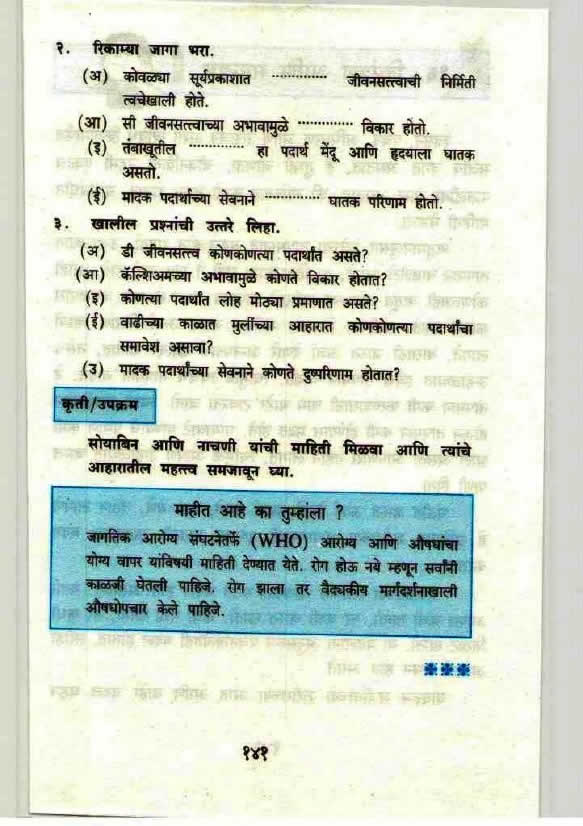 २. रिकाम्या जागा भरा.
(अ) कोवळ्या सूर्यप्रकाशात .............. जीवनसत्त्वाची निर्मिती
त्वचेखाली होते.
(आ) सी जीवनसत्त्वाच्या अभावामुळे .............. विकार होतो.
(इ) तंबाखूतील .............. हा पदार्थ मेंदू आणि हृदयाला घातक
असतो.
(ई) मादक पदार्थांच्या सेवनाने .............. घातक परिणाम होतो.
३. खालील प्रश्नांची उत्तरे लिहा.
(अ) डी जीवनसत्त्व कोणकोणत्या पदार्थांत असते?
(आ) कॅल्शिअमच्या अभावामुळे कोणते विकार होतात?
(इ) कोणत्या पदार्थांत लोह मोठ्या प्रमाणात असते?
(ई) वाढीच्या काळात मुलींच्या आहारात कोणकोणत्या पदार्थांचा
समावेश असावा?
(उ) मादक पदार्थांच्या सेवनाने कोणते दुष्परिणाम होतात?
कृती/उपक्रम
सोयाबिन आणि नाचणी यांची माहिती मिळवा आणि त्यांचे
आहारातील महत्त्व समजावून घ्या.
माहीत आहे का तुम्हांला ?
जागतिक आरोग्य संघटनेतर्फे (WHO) आरोग्य आणि औषधांचा
योग्य वापर यांविषयी माहिती देण्यात येते. रोग होऊ नये म्हणून सर्वांनी
काळजी घेतली पाहिजे. रोग झाला तर वैद्यकीय मार्गदर्शनाखाली
औषधोपचार केले पाहिजे.
१४१